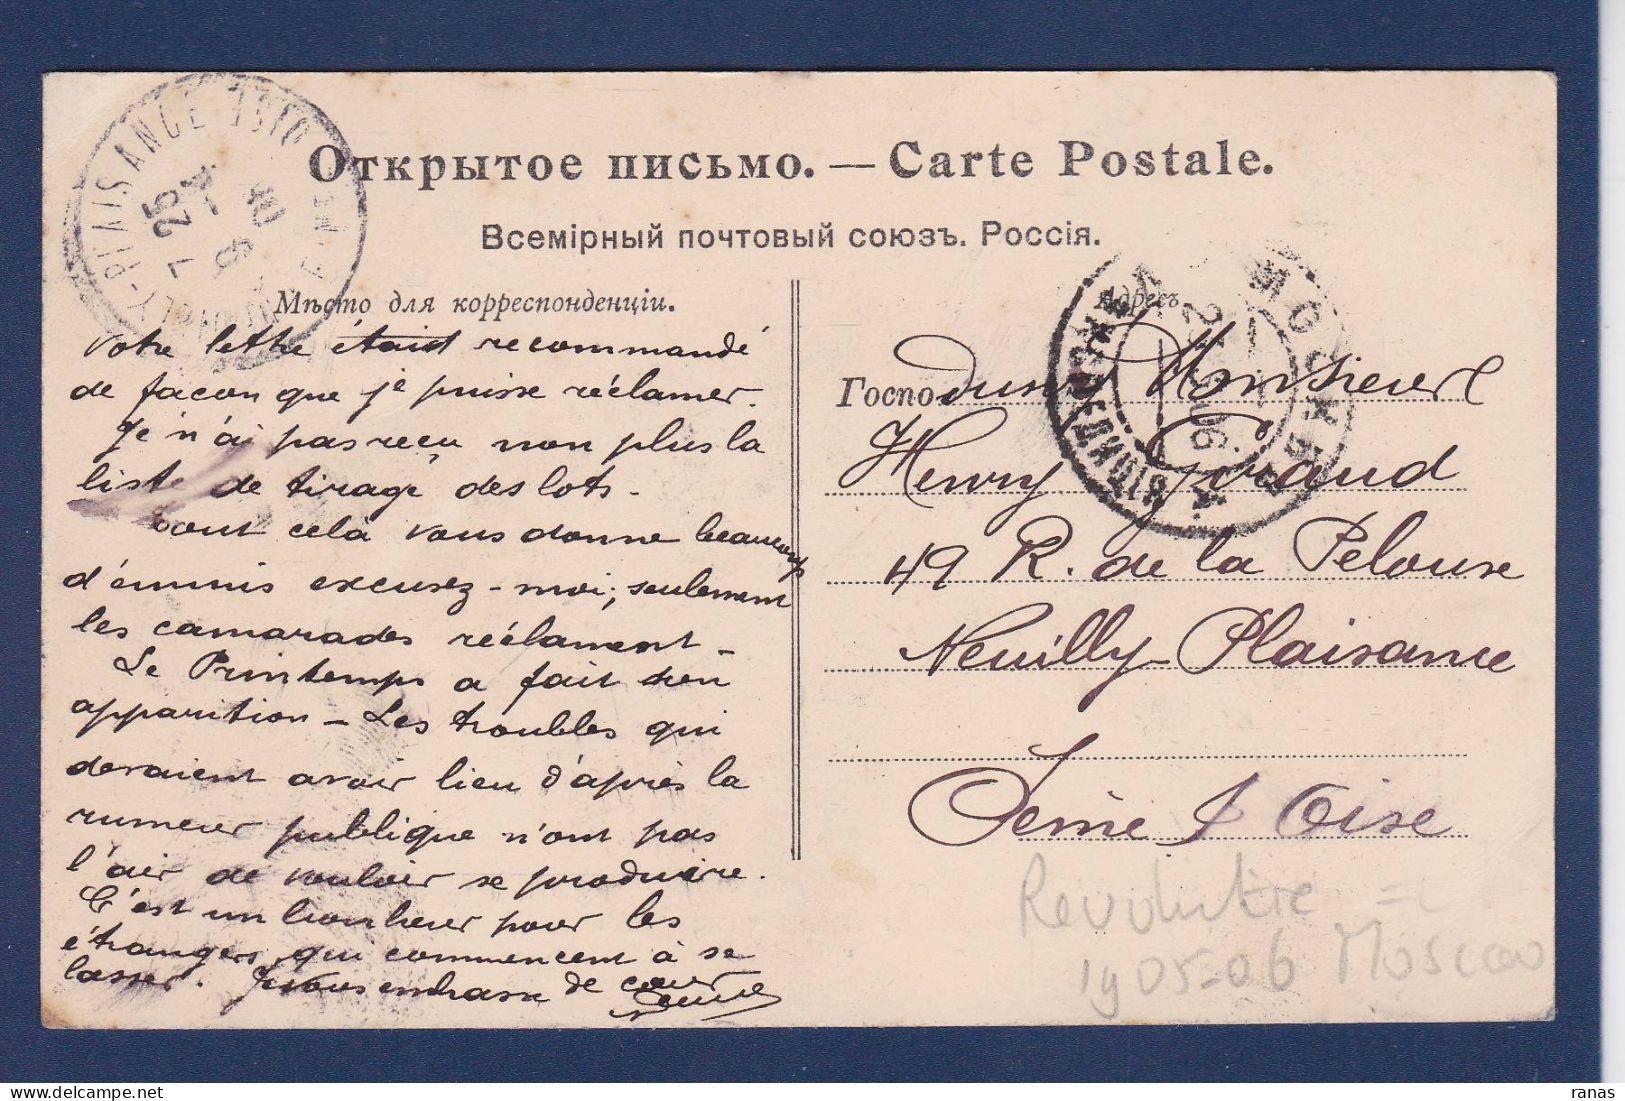 Открытое письмо. — Carte Postale.
Всемірный почтовый союзъ. Россія.
Мѣсто для корреспонденціи.
Адресъ
votre lettre était recommandé
de façon que je puisse réclamer.
Je n'ai pas reçu non plus la
liste de tirage des lots.
tout celà vous donne beaucoup
d'ennuis excusez-moi, seulement
les camarades réclament –
Le Printemps a fait son
apparition – Les troubles qui
devaient avoir lieu d'après la
rumeur publique n'ont pas
l'air de vouloir se produire.
C'est un bonheur pour les
étrangers qui commencent à se
lasser. Je vous embrasse de cœur
Госпо Monsieur
Henry Giraud
49 R. de la Pelouse
Neuilly-Plaisance
Seine & Oise
Revolutie
1905-06 Moscou
PLAISANCE
7 25
МОСКВА
ЭКСПЕДИЦІЯ
06
ranas